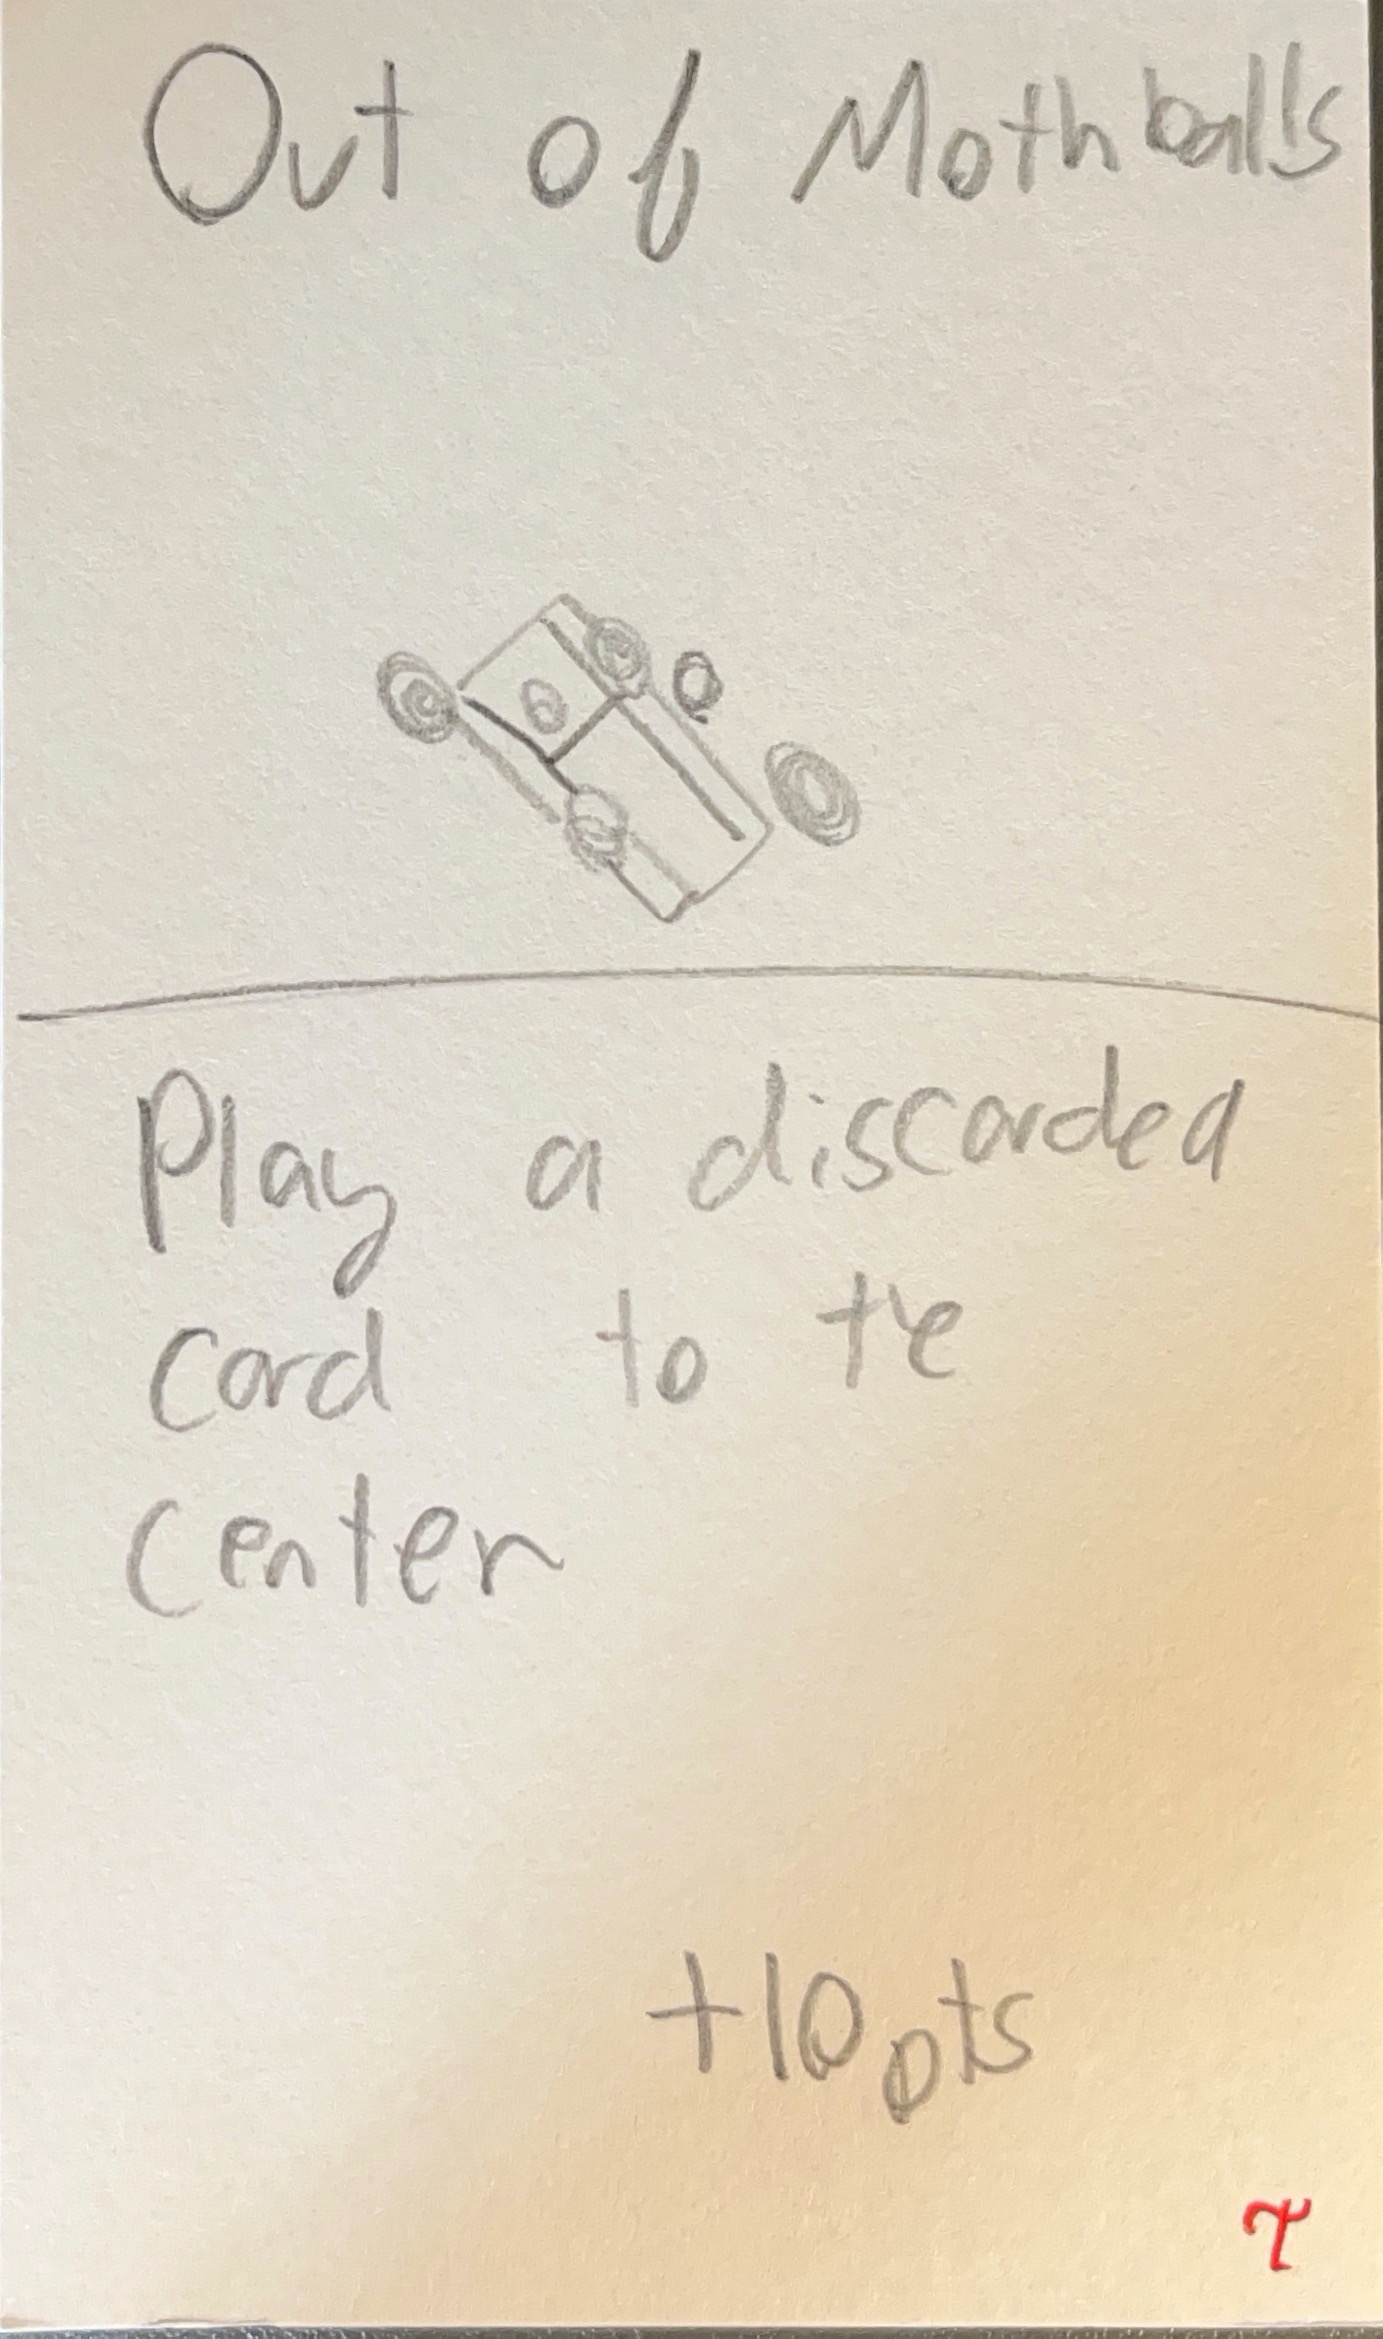 Out of Mothballs
Play a discarded
card to te
center
+10pts
τ